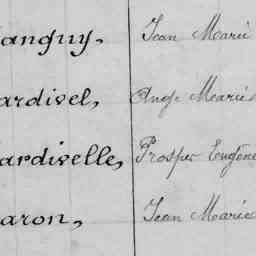 anguy, Jean Marie
ardivel, Ange Marie
ardivelle, Prosper Eugène
aron, Jean Marie